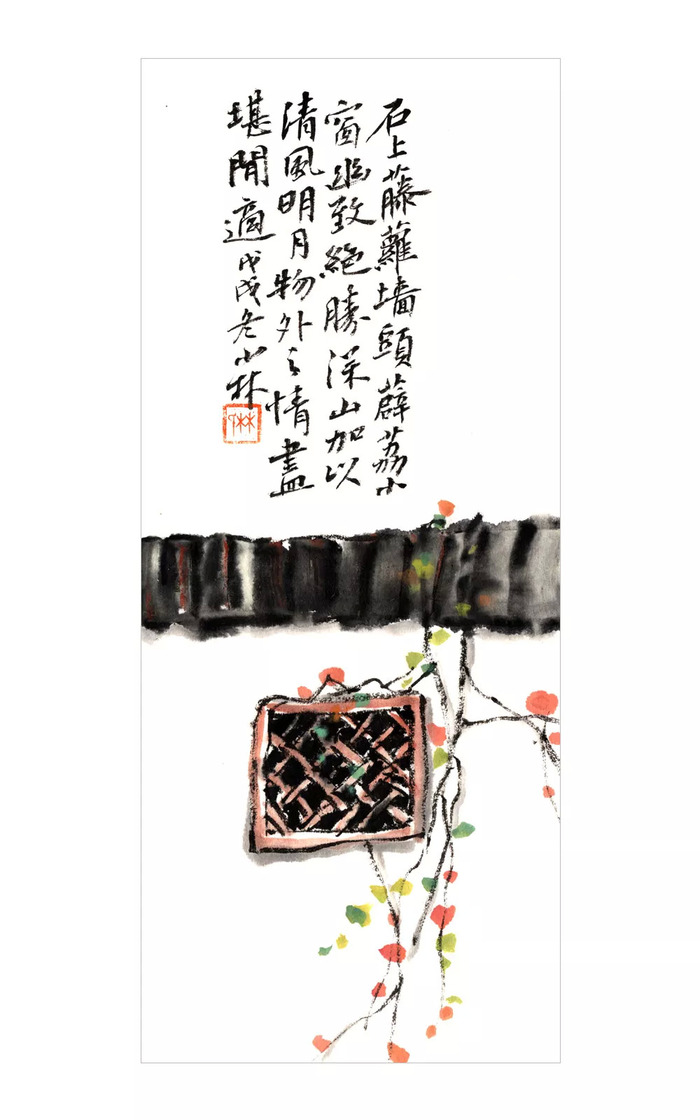 石上藤蘿墙頭薜荔小
窗幽致絕勝深山加以
清風明月物外之情盡
堪閒適戊戌老小林
林